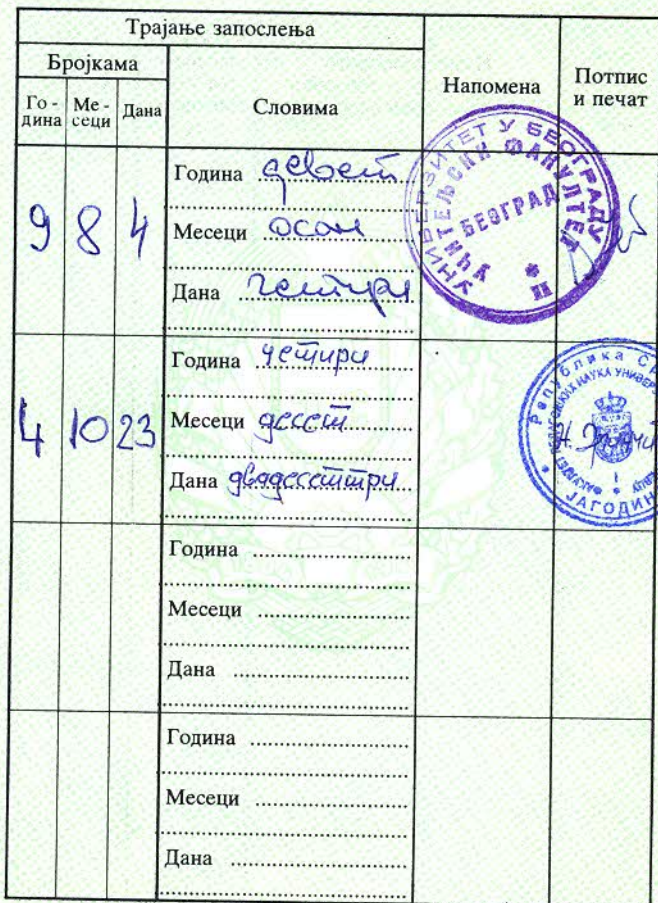 Трајање запослења
Бројкама
Словима
Напомена
Потпис и печат
Го-дина
Ме-сеци
Дана
9 8 4
Година девет
Месеци осам
Дана четири
УНИВЕРЗИТЕТ У БЕОГРАДУ
УЧИТЕЉСКИ ФАКУЛТЕТ
БЕОГРАД
II
4 10 23
Година четири
Месеци десет
Дана двадесеттри
Република Ср
НАУКА УНИВЕР
ЈАГОДИН
Година
Месеци
Дана
Година
Месеци
Дана